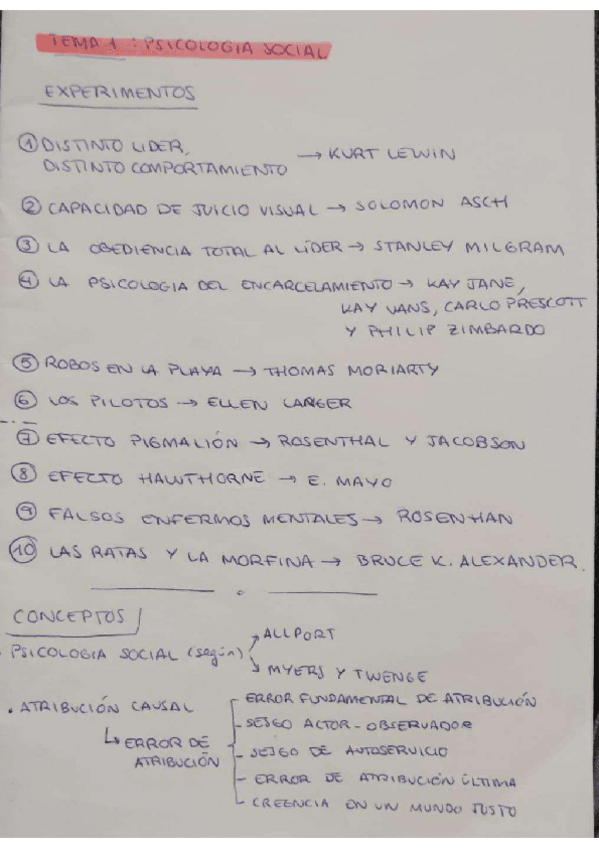 TEMA 1 : PSICOLOGIA SOCIAL
EXPERIMENTOS
① DISTINTO LIDER,
DISTINTO COMPORTAMIENTO → KURT LEWIN
② CAPACIDAD DE JUICIO VISUAL → SOLOMON ASCH
③ LA OBEDIENCIA TOTAL AL LÍDER → STANLEY MILGRAM
④ LA PSICOLOGIA DEL ENCARCELAMIENTO → KAY JANE,
KAY VANS, CARLO PRESCOTT
Y PHILIP ZIMBARDO
⑤ ROBOS EN LA PLAYA → THOMAS MORIARTY
⑥ LOS PILOTOS → ELLEN LANGER
⑦ EFECTO PIGMALIÓN → ROSENTHAL Y JACOBSON
⑧ EFECTO HAWTHORNE → E. MAYO
⑨ FALSOS ENFERMOS MENTALES → ROSENHAN
⑩ LAS RATAS Y LA MORFINA → BRUCE K. ALEXANDER.
CONCEPTOS
PSICOLOGIA SOCIAL (según) → ALLPORT
→ MYERS Y TWENGE
. ATRIBUCIÓN CAUSAL
↳ ERROR DE ATRIBUCIÓN
- ERROR FUNDAMENTAL DE ATRIBUCIÓN
- SESGO ACTOR-OBSERVADOR
- SESGO DE AUTOSERVICIO
- ERROR DE ATRIBUCIÓN ÚLTIMA
- CREENCIA EN UN MUNDO JUSTO